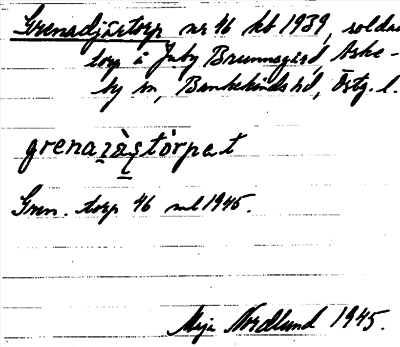 Grenadjärtorp nr 46 kt 1939, solda
torp å Juby Brunnsgård, Aske-
by sn, Bankekinds hd, Östg. l.
grenar̤ä̀s̤tórpət
Gren. torp 46 ml 1945.
Maja Nordlund 1945.